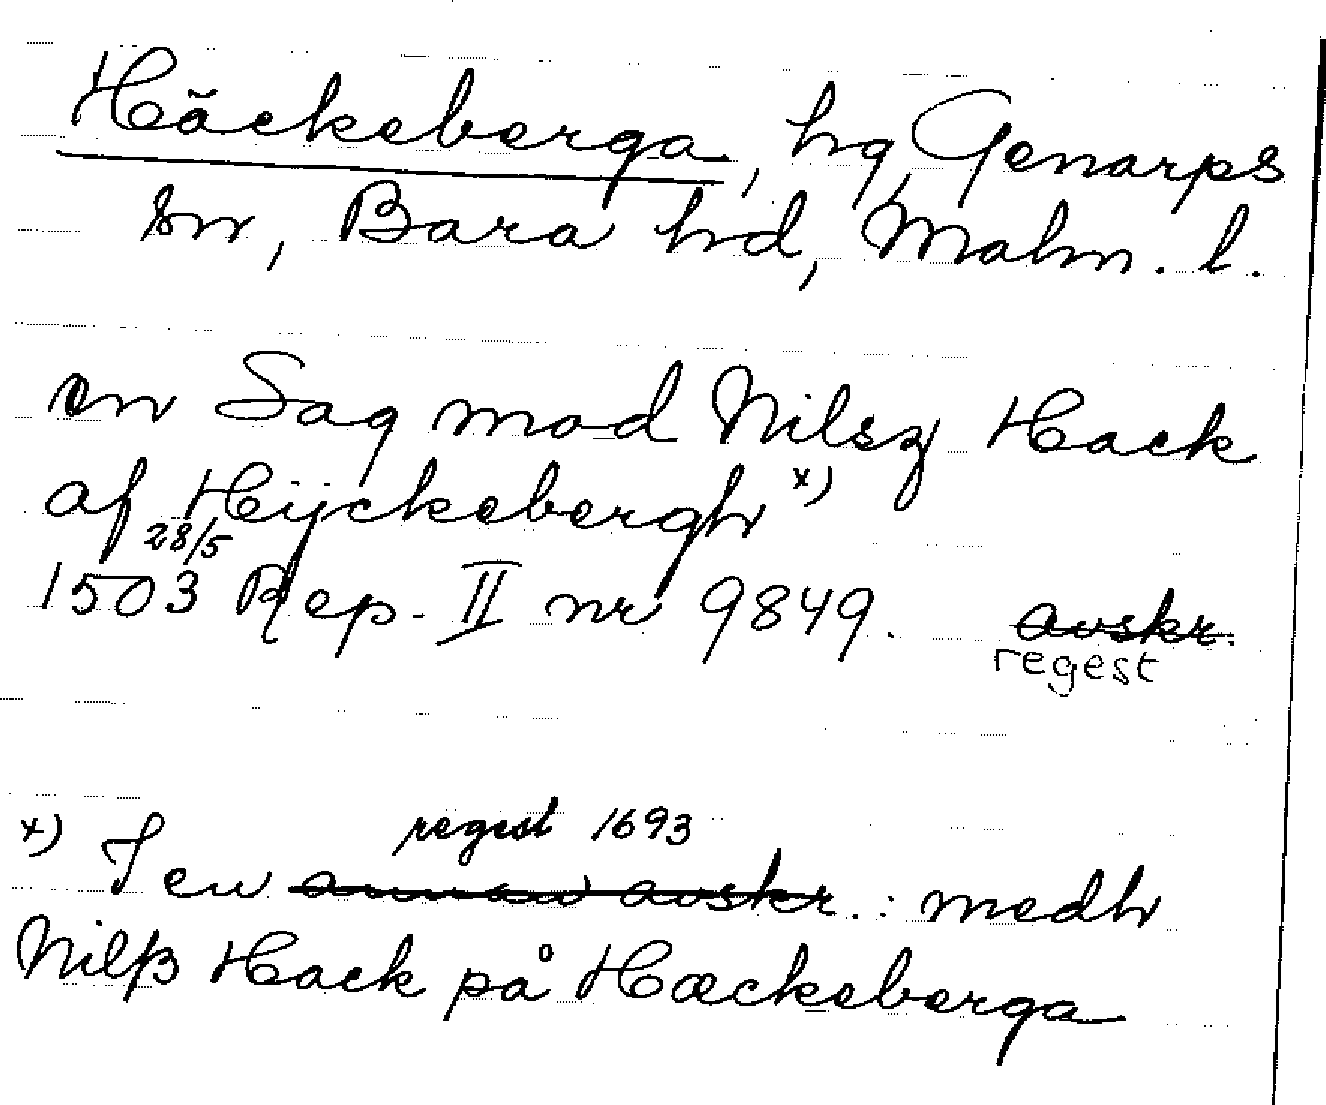 Häckeberga, hg, Genarps
sn, Bara hd, Malm. l.
en Sag mod Nilsz Hack
af Hÿckebergh x)
28/5
1503 Rep. II nr 9849. avskr.
regest
regest 1693
x) I en annan avskr. : medh
Nilß Hack på Hæckeberga